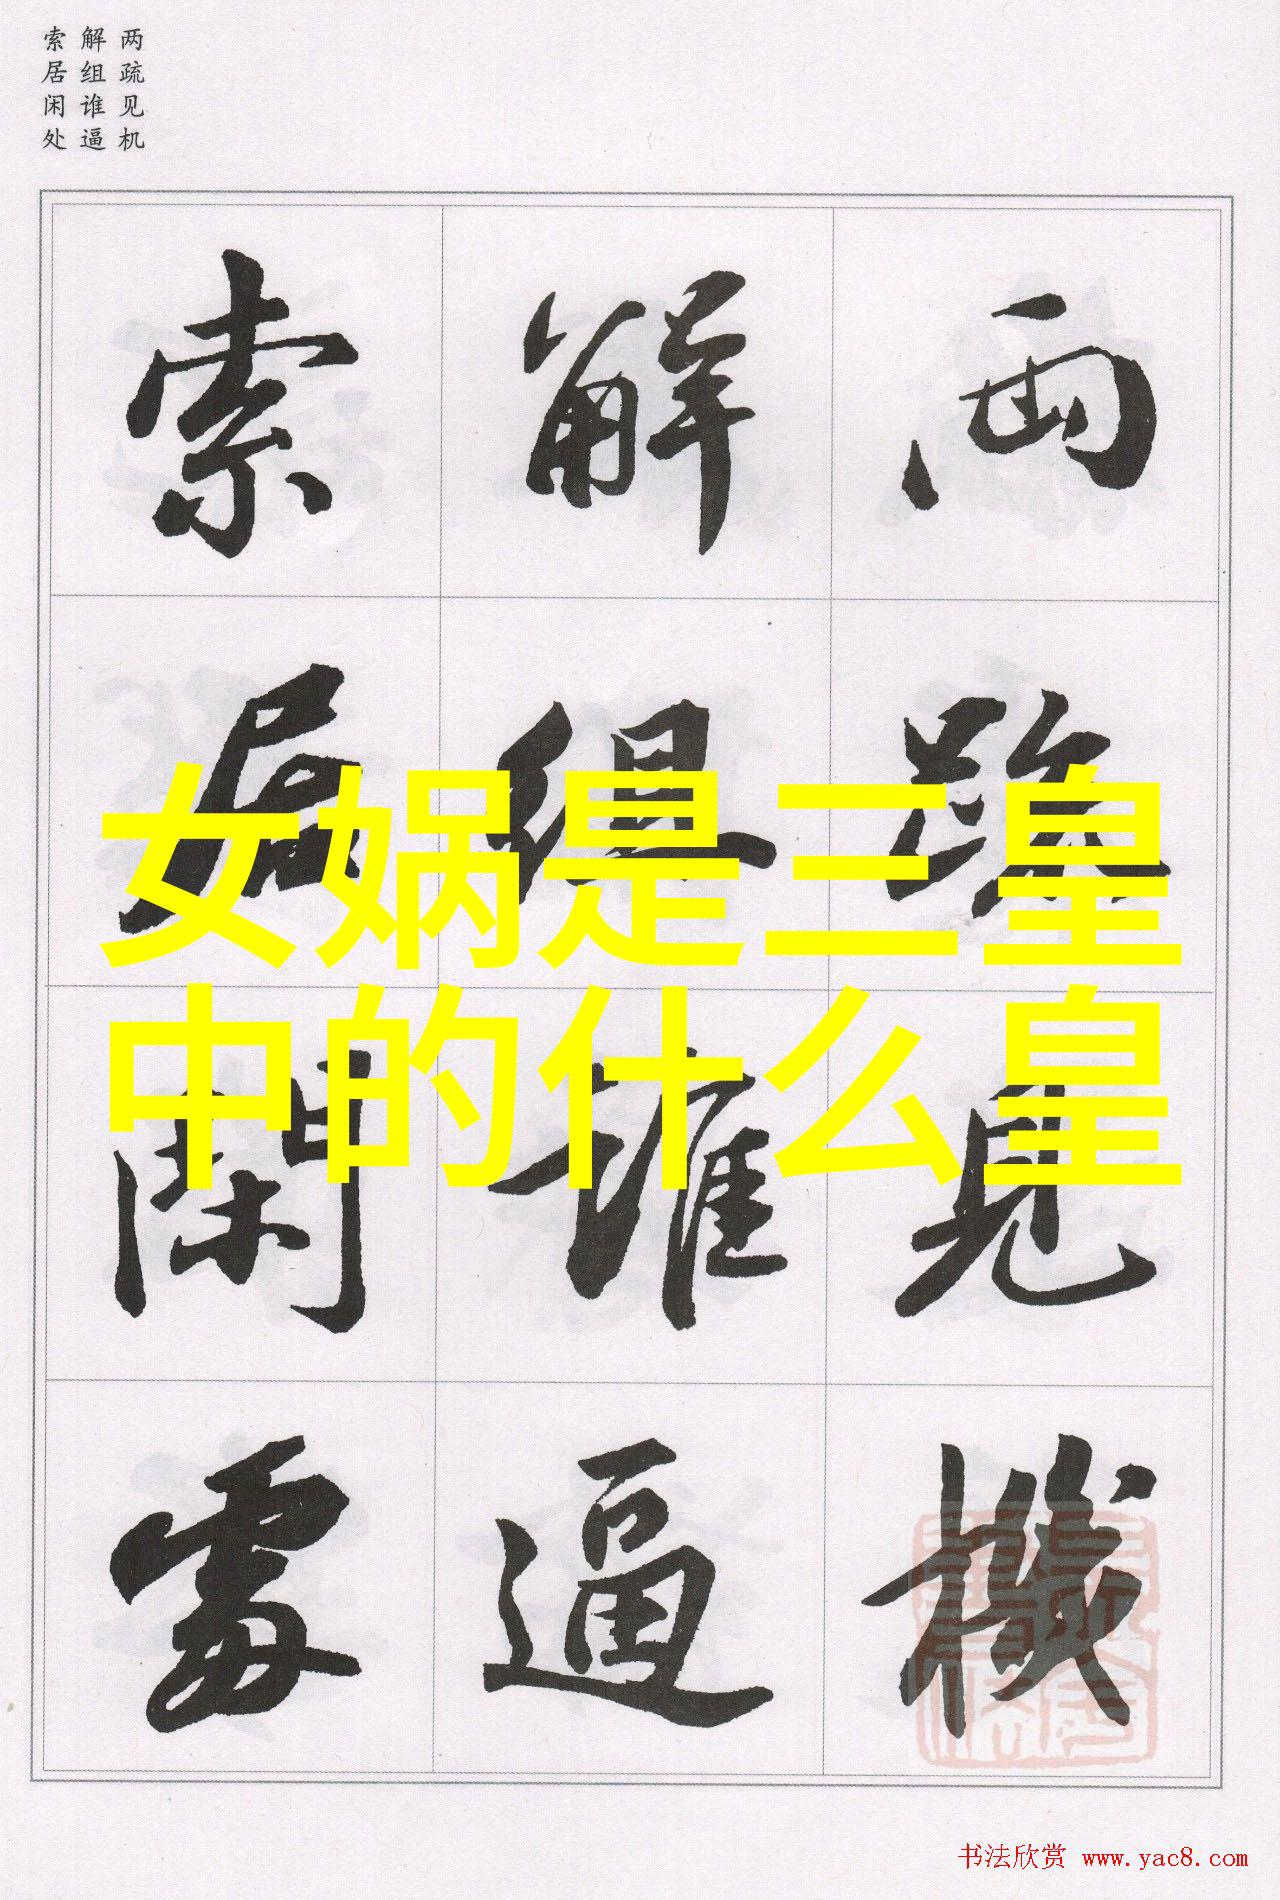 两疏见机
解组谁逼
索居闲处
女娲是三皇
中的什么皇
两疏见機
解组誰逼
索居閑處
书法欣赏 www.yac8.com